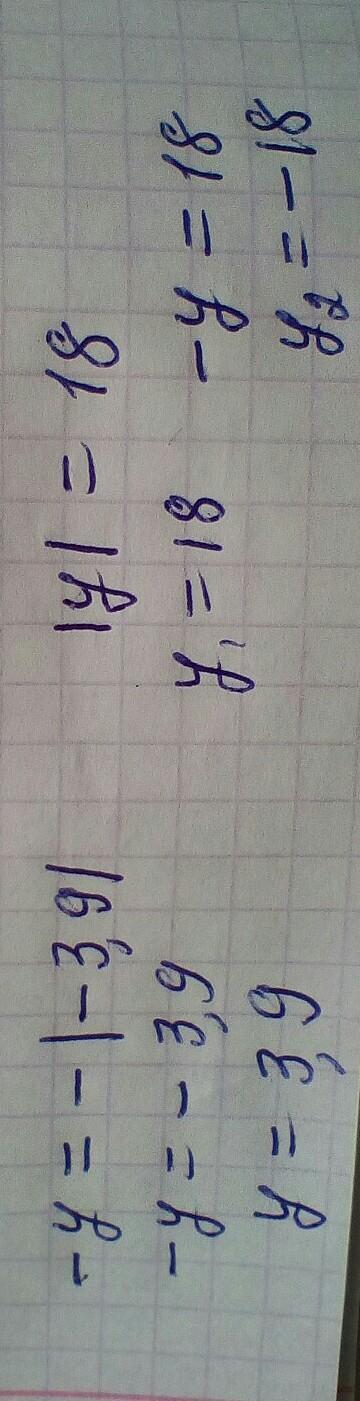 -y = -|-3,9|
-y = -3,9
y = 3,9
|y| = 18
y₁ = 18 -y = 18
y₂ = -18